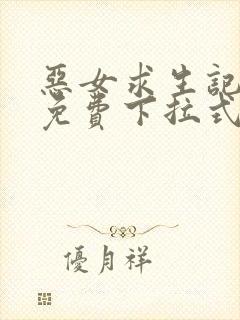 惡女求生記
免費下拉式
優月祥